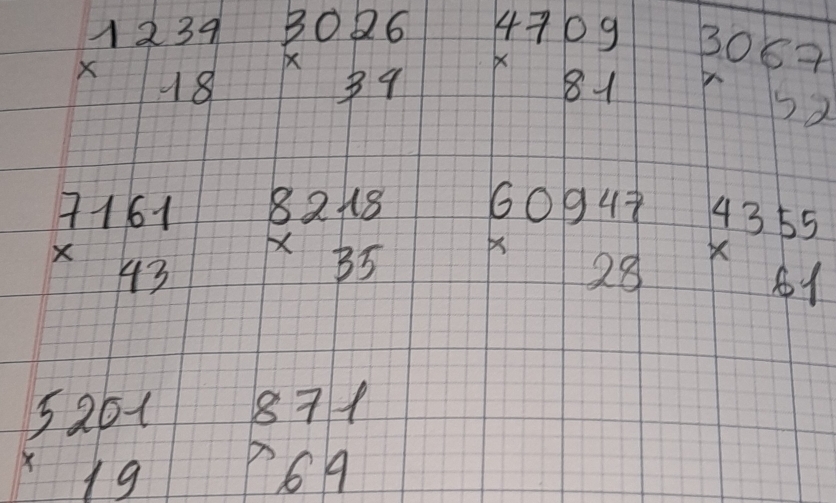 1239 3026 4709 3067
x 18 x 39 x 81 x 52
7161 8218 60947 4355
x 43 x 35 x 28 x 61
5201 871
x 19 x 69